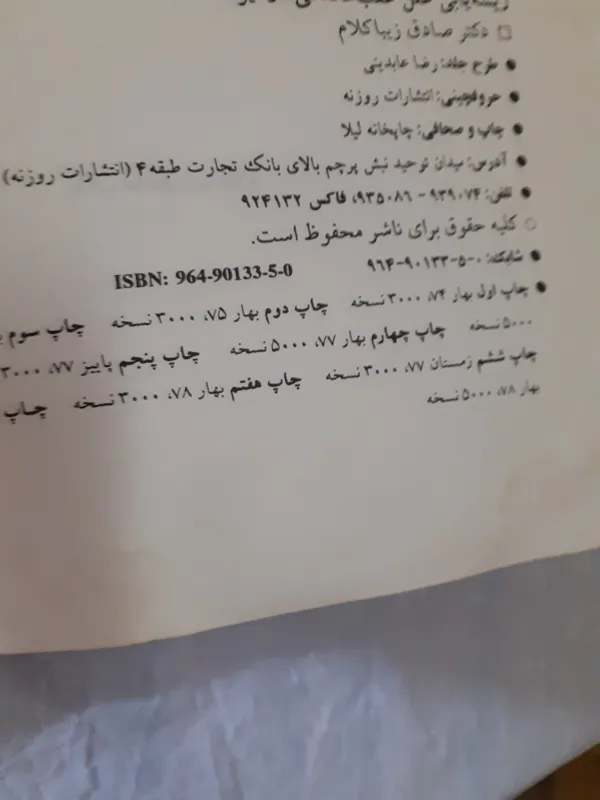 دکتر صادق زیباکلام
طرح جلد: رضا عابدینی
حروفچینی: انتشارات روزنه
چاپ و صحافی: چاپخانه لیلا
آدرس: میدان توحید نبش پرچم بالای بانک تجارت طبقه ۴ (انتشارات روزنه)
تلفن: ۹۳۹۰۷۴ - ۹۳۵۰۸۶، فاکس ۹۲۴۱۳۲
کلیه حقوق برای ناشر محفوظ است.
شابک: ۰-۵-۹۰۱۳۳-۹۶۴ ISBN: 964-90133-5-0
چاپ اول بهار ۷۴، ۳۰۰۰ نسخه چاپ دوم بهار ۷۵، ۳۰۰۰ نسخه چاپ سوم
۵۰۰۰ نسخه چاپ چهارم بهار ۷۷، ۵۰۰۰ نسخه چاپ پنجم پاییز ۷۷، ۳۰۰۰
چاپ ششم زمستان ۷۷، ۳۰۰۰ نسخه چاپ هفتم بهار ۷۸، ۳۰۰۰ نسخه چاپ
بهار ۷۸، ۵۰۰۰ نسخه